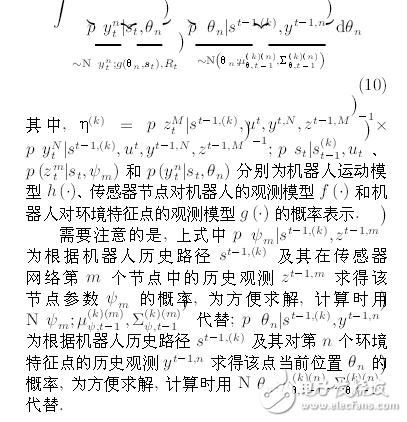 ∫ p y_t^n|s_t, θ_n) p θ_n|s^{t-1,(k)}, y^{t-1,n} dθ_n
∼N y_t^{n};g(θ_n,s_t),R_t) ∼N(θ_n;μ_{θ,t-1}^{(k)(n)},Σ_{θ,t-1}^{(k)(n)})
(10)
其中, η^{(k)} = p z_t^M|s^{t-1,(k)}, u^t, y^{t,N}, z^{t-1,M})^{-1}×
p y_t^N|s^{t-1,(k)}, u^t, y^{t-1,N}, z^{t-1,M})^{-1}; p s_t|s_{t-1}^{(k)}, u_t 、
p(z_t^m|s_t, ψ_m) 和 p(y_t^n|s_t, θ_n) 分别为机器人运动模
型 h(·)、传感器节点对机器人的观测模型 f(·) 和机
器人对环境特征点的观测模型 g(·) 的概率表示. )
需要注意的是, 上式中 p ψ_m|s^{t-1,(k)}, z^{t-1,m}
为根据机器人历史路径 s^{t-1,(k)} 及其在传感器
网络第 m 个节点中的历史观测 z^{t-1,m} 求得该
节点参数 ψ_m 的概率, 为方便求解, 计算时用
N ψ_m; μ_{ψ,t-1}^{(k)(m)}, Σ_{ψ,t-1}^{(k)(m)} 代替; p θ_n|s^{t-1,(k)}, y^{t-1,n}
为根据机器人历史路径 s^{t-1,(k)} 及其对第 n 个环境
特征点的历史观测 y^{t-1,n} 求得该点当前位置 θ_n 的
概率, 为方便求解, 计算时用 N θ
代替.
电子发烧友